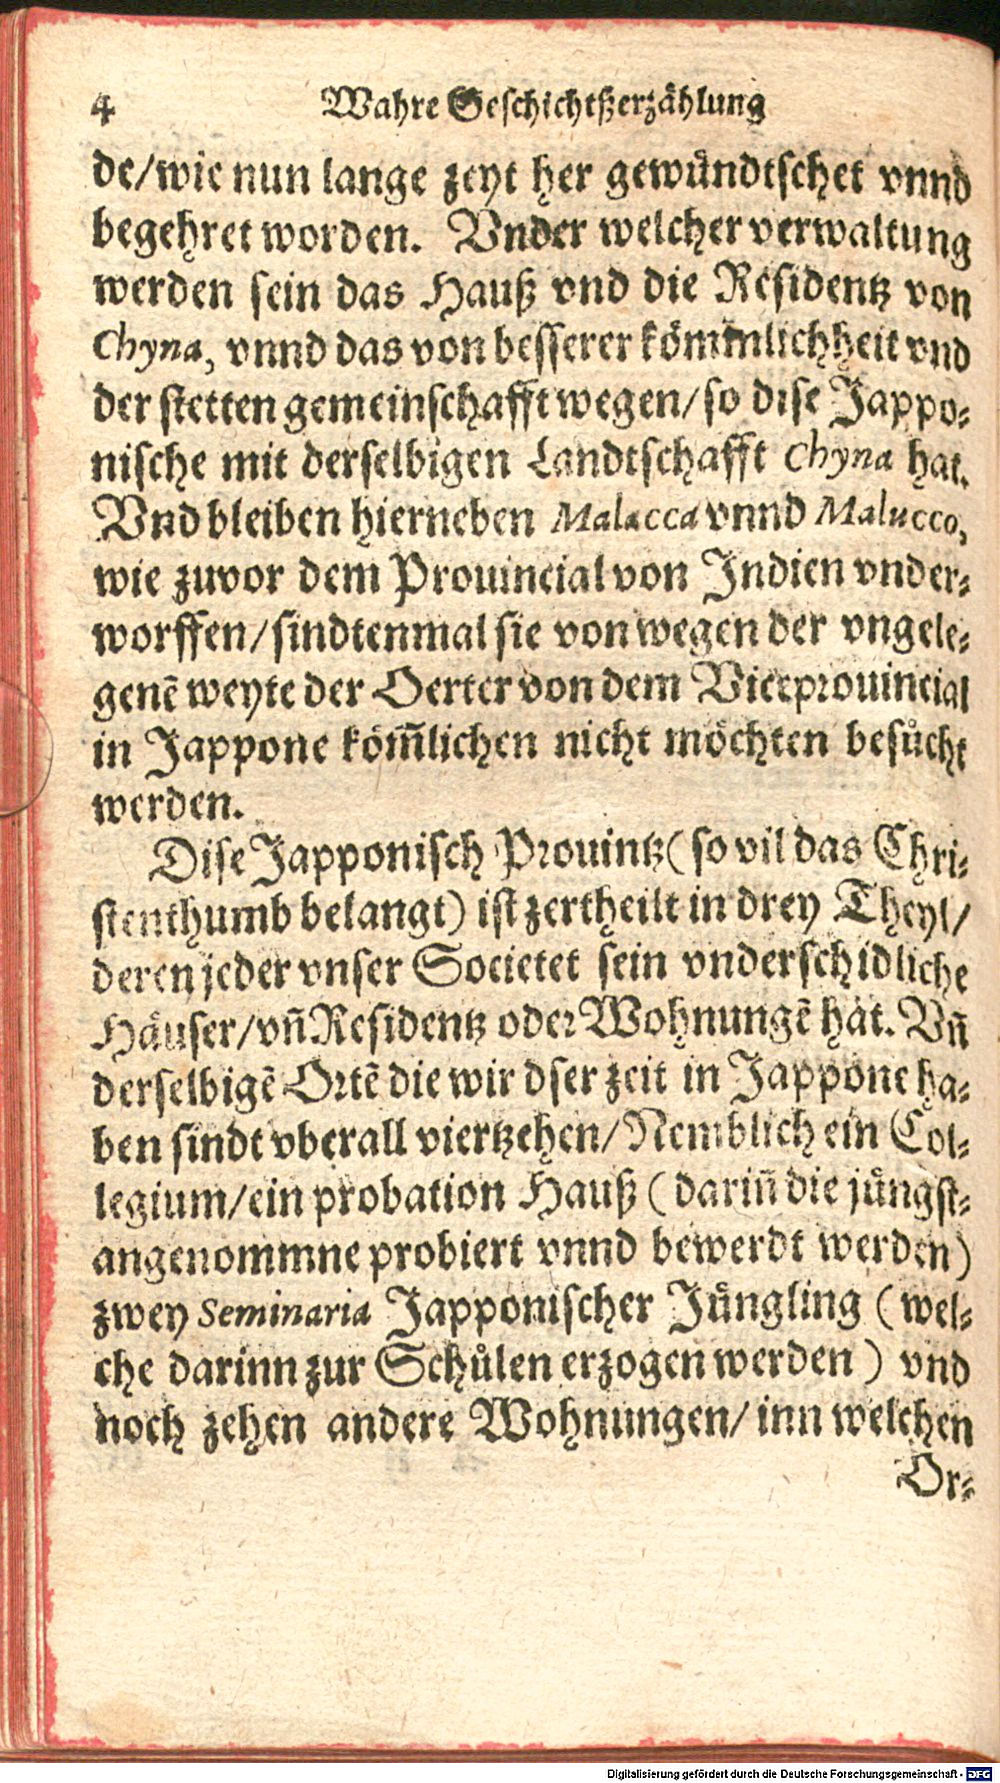 4 Wahre Geschichtßerzählung
de/wie nun lange zeyt her gewůndtschet vnnd
begehret worden. Vnder welcher verwaltung
werden sein das Hauß vnd die Residentz von
Chyna, vnnd das von besserer kömmlichheit vnd
der stetten gemeinschafft wegen/so dise Jappo-
nische mit derselbigen Landtschafft Chyna hat.
Vnd bleiben hierneben Malacca vnnd Malucco,
wie zuvor dem Prouincial von Indien vnder-
worffen/sindtenmal sie von wegen der vngele-
genē weyte der Oerter von dem Viceprouincial
in Jappone köm̄lichen nicht möchten besůcht
werden.
Dise Japponisch Prouintz(so vil das Chri-
stenthumb belangt) ist zertheilt in drey Theyl/
deren jeder vnser Societet sein vnderschidliche
Häuser/vn̄ Residentz oder Wohnungē hat. Vn̄
derselbigē Ortē die wir dser zeit in Jappone ha-
ben sindt vberall viertzehen/Nemblich ein Col-
legium/ein probation Hauß (darin̄ die jůngst-
angenommne probiert vnnd bewerdt werden)
zwey Seminaria Japponischer Jůngling (wel-
che darinn zur Schůlen erzogen werden) vnd
noch zehen andere Wohnungen/inn welchen
Or-
Digitalisierung gefördert durch die Deutsche Forschungsgemeinschaft - DFG